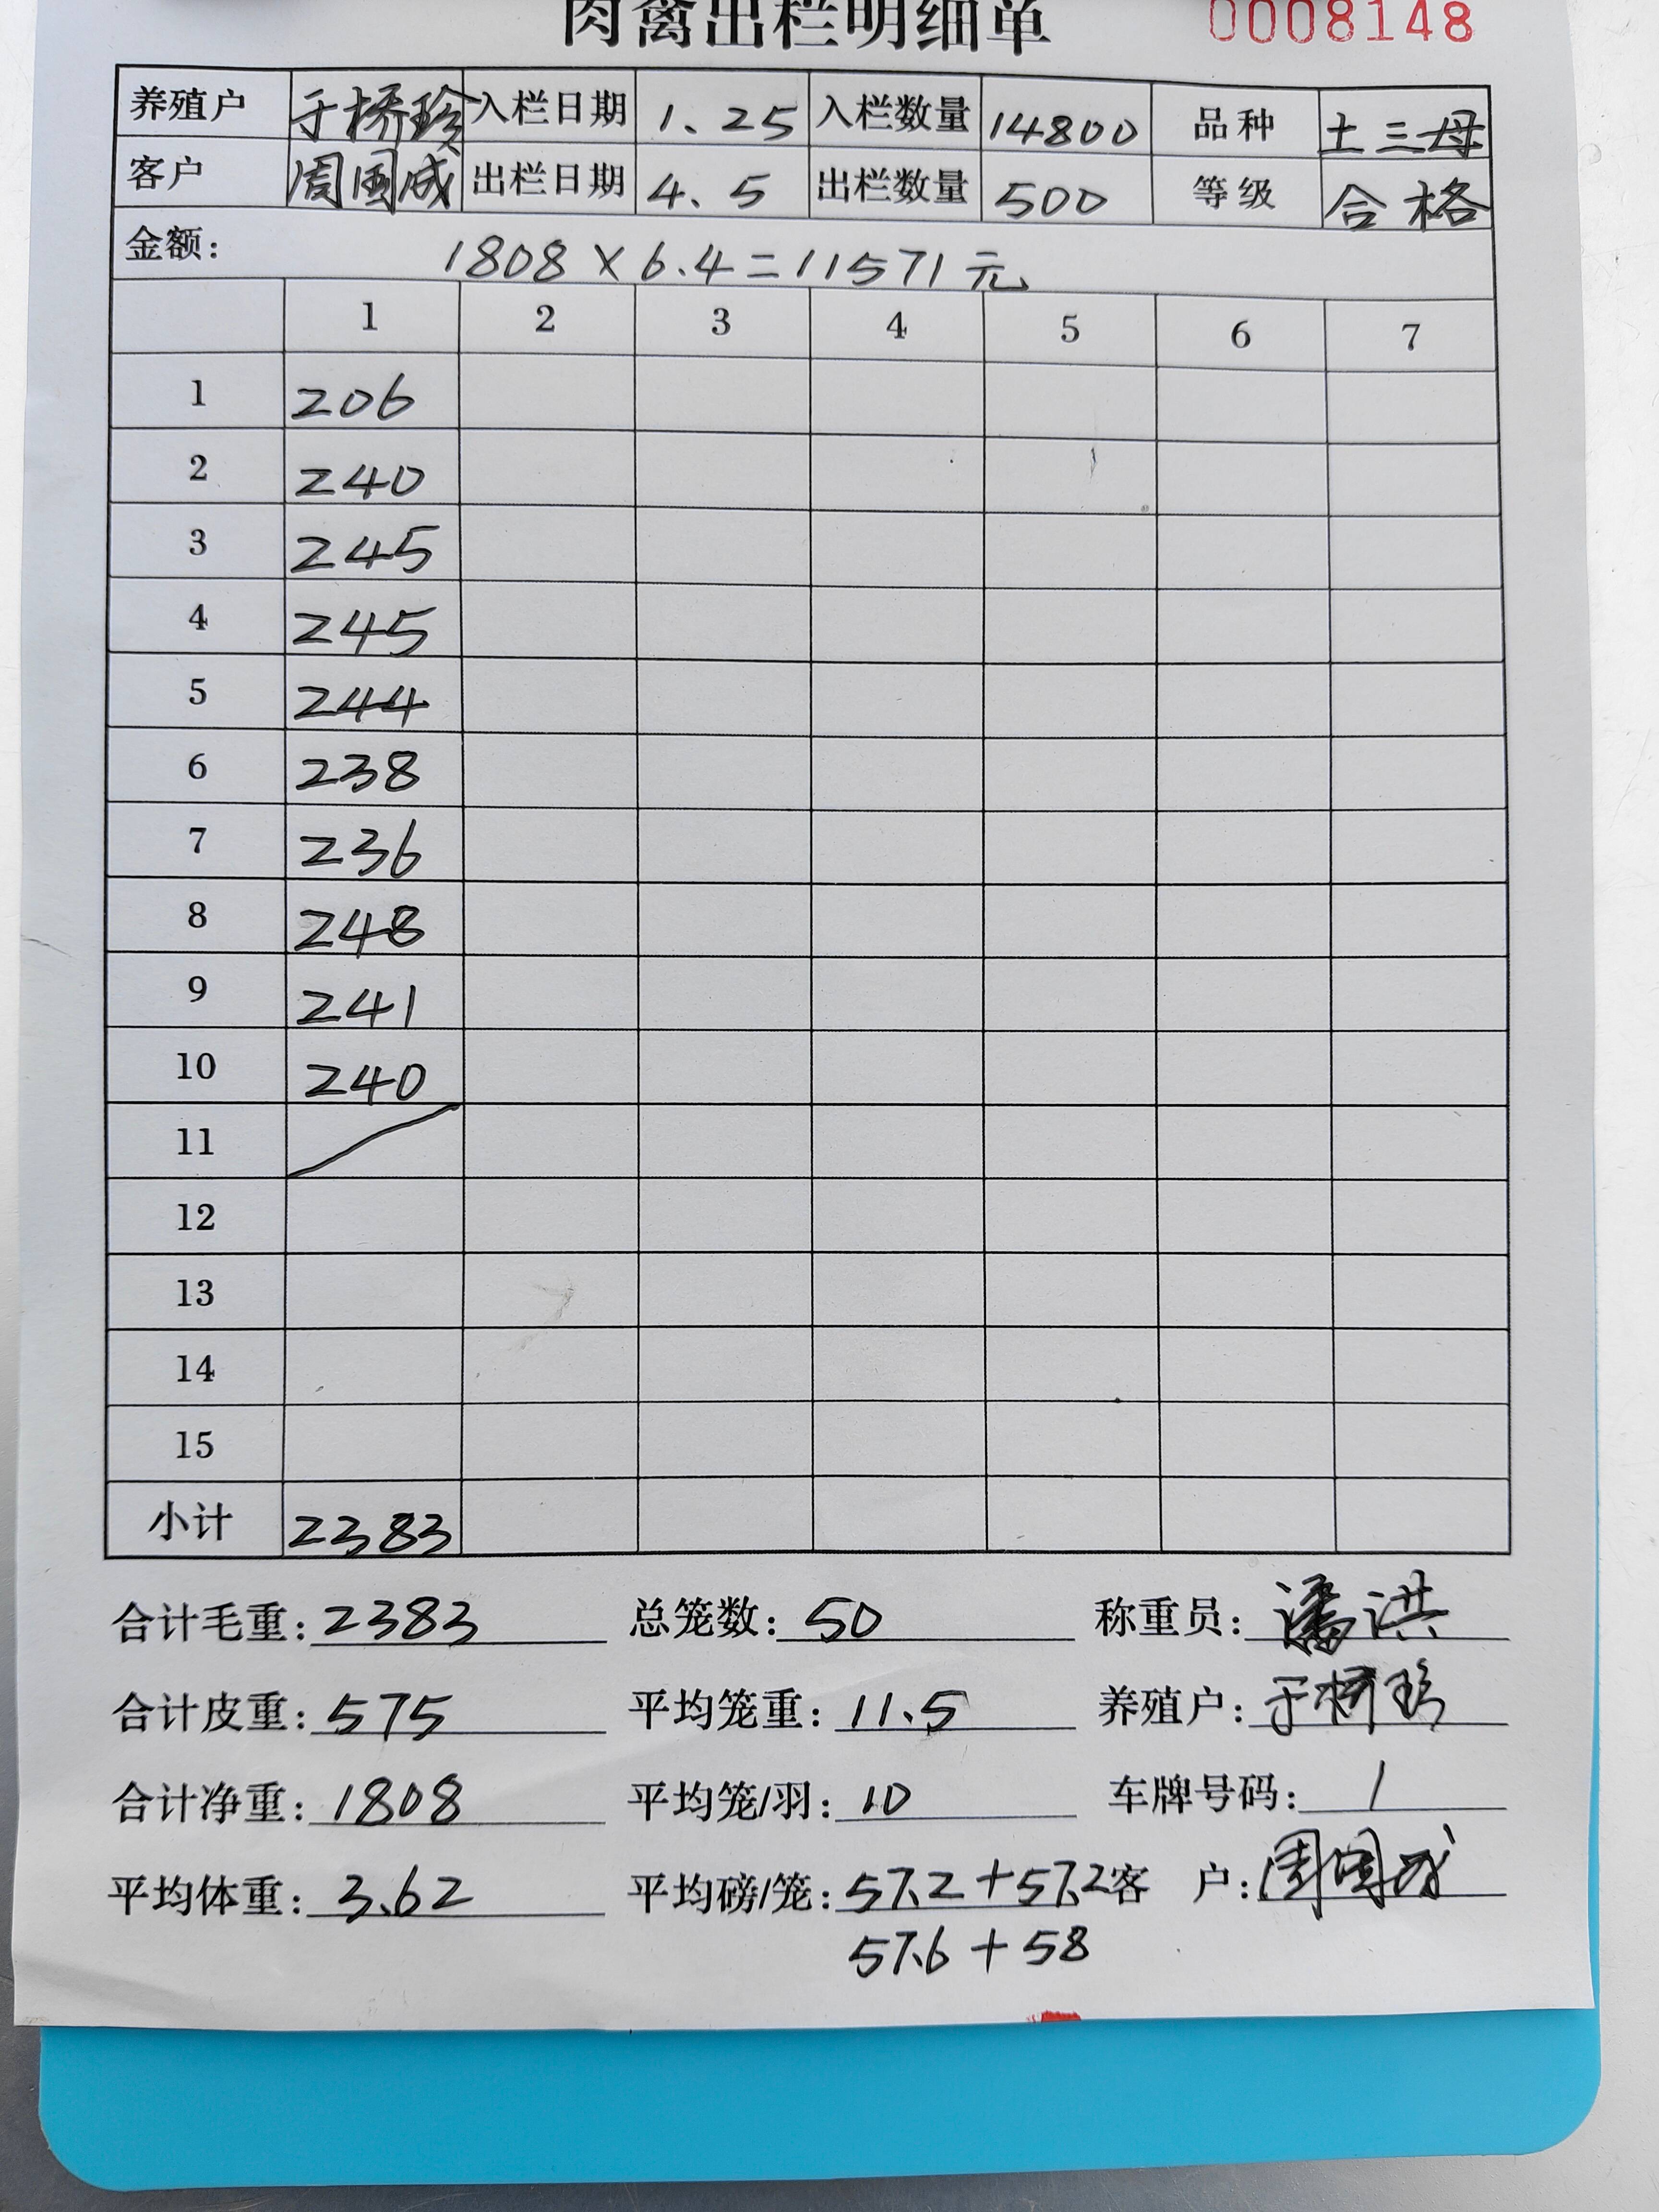 肉禽出栏明细单 0008148
养殖户 于桥珍 入栏日期 1.25 入栏数量 14800 品种 土三母
客户 周国成 出栏日期 4.5 出栏数量 500 等级 合格
金额: 1808×6.4=11571元
1 2 3 4 5 6 7
1 206
2 240
3 245
4 245
5 244
6 238
7 236
8 248
9 241
10 240
11
12
13
14
15
小计 2383
合计毛重: 2383 总笼数: 50 称重员: 潘洪
合计皮重: 575 平均笼重: 11.5 养殖户: 于桥珍
合计净重: 1808 平均笼/羽: 10 车牌号码: 1
平均体重: 3.62 平均磅/笼: 57.2+57.2 客 户: 周国成
57.6+58